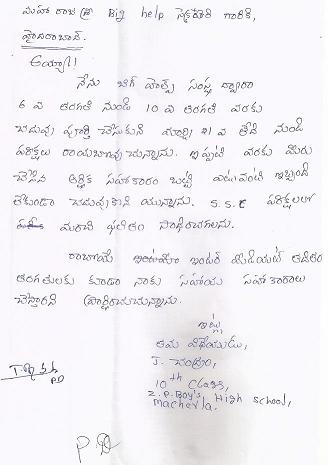 మహా రాజ శ్రీ Big help సెక్రటరీ గారికి,
హైదరాబాద్.
అయ్యా!!
నేను బిగ్ హెల్ప్ సంస్థ ద్వారా
6 వ తరగతి నుండి 10 వ తరగతి వరకు
చదువు పూర్తి చేసుకుని మార్చి 21 వ తేది నుండి
పరీక్షలు రాయబోవుచున్నాను. ఇప్పటి వరకు మీరు
చేసిన ఆర్థిక సహకారం బట్టి ఎటువంటి ఇబ్బంది
లేకుండా చదువుకొని యున్నాను. S.S.C పరీక్షలలో
మంచి ఫలితం సాధించగలను.
రాబోయే ఇంటర్ మీడియట్ తదితర
తరగతులకు కూడా నాకు సహాయ సహకారాలు
చేస్తారని ప్రార్థించుచున్నాను.
ఇట్లు
తమ విధేయుడు,
T.
10th Class,
Z.P. Boy's High School,
Macherla.